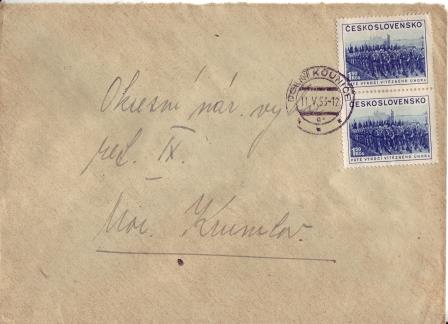 ČESKOSLOVENSKO
1.50 Kčs
PÁTÉ VÝROČÍ VÍTĚZNÉHO ÚNORA
ČESKOSLOVENSKO
1.50 Kčs
PÁTÉ VÝROČÍ VÍTĚZNÉHO ÚNORA
DOLNÍ KOUNICE
11.V.53-12
Okresní nár. výb
ref. IX.
Mor. Krumlov.